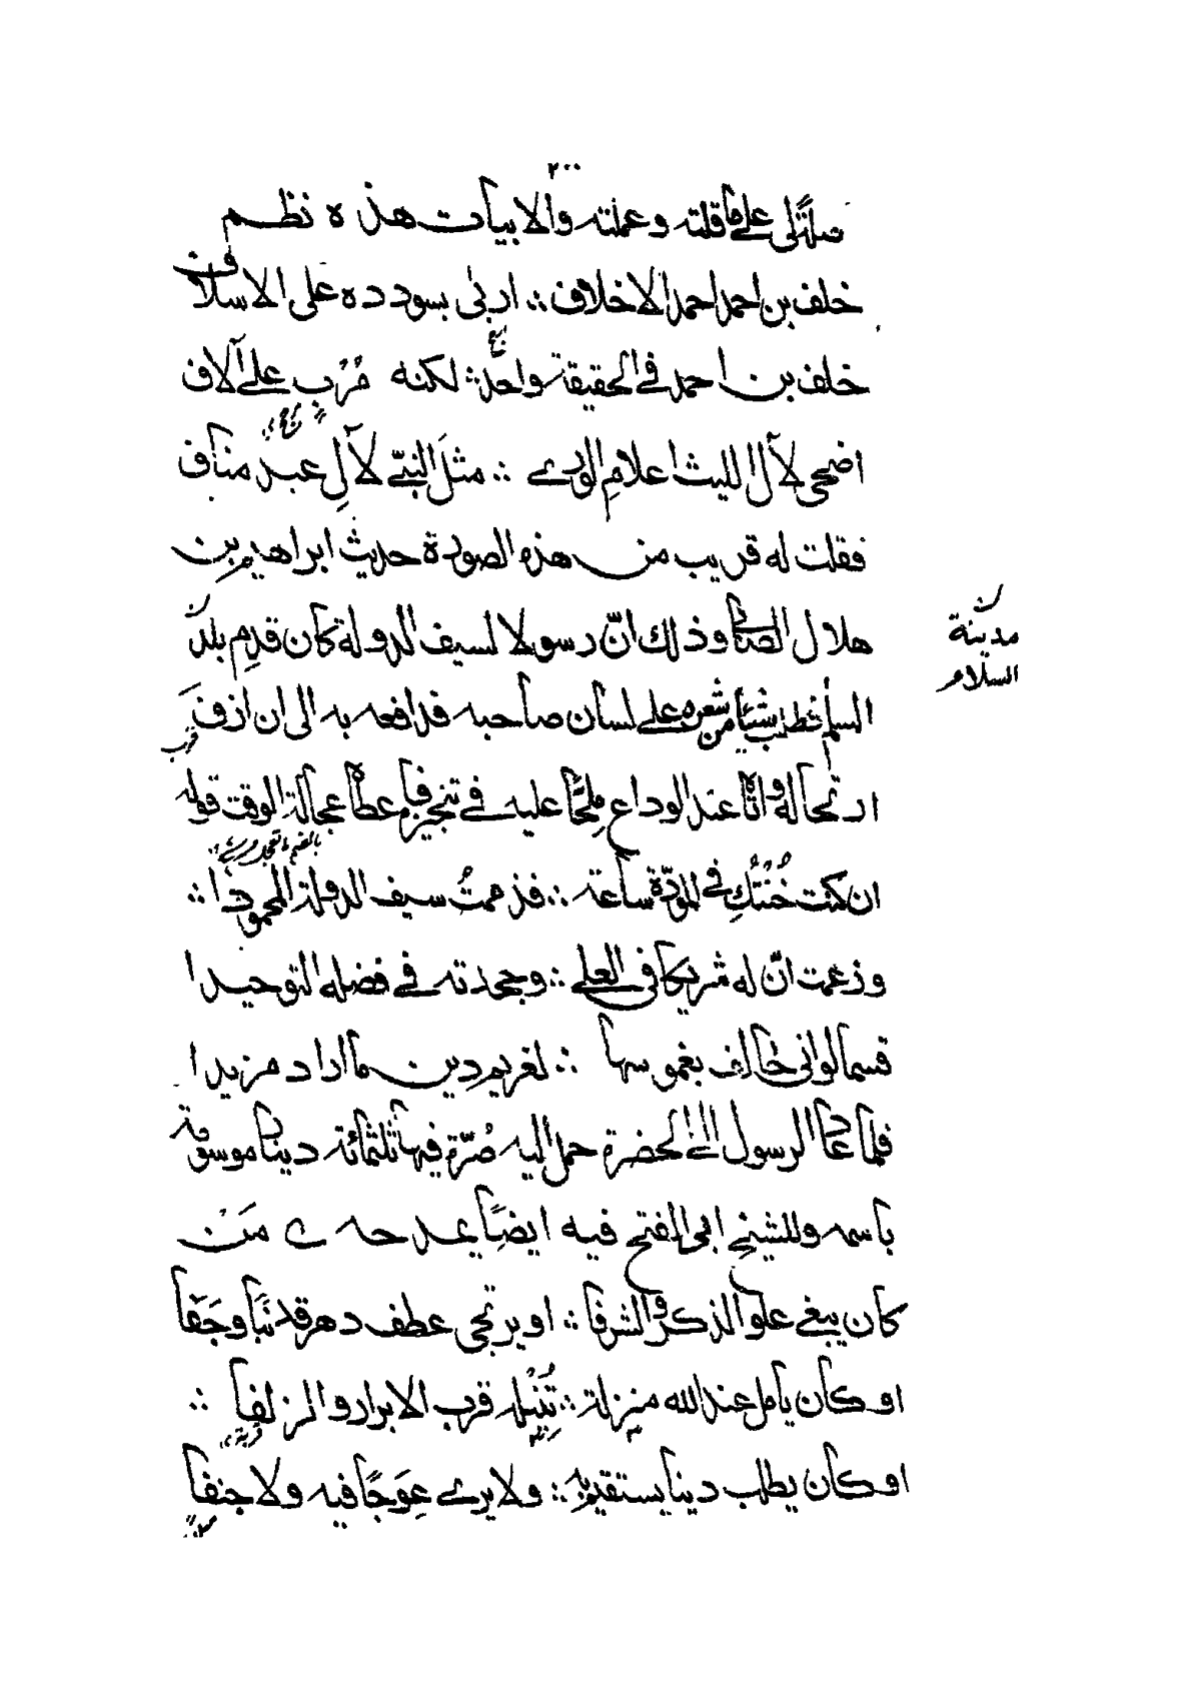 ٢٠٠
صلةً لى على ما قلته وعملته والابيات هذه نظم
خلف بن احمد احمد الاخلاف ؞ اربى بسودده على الاسلاف
خلف بن احمد فى الحقيقة واحد ؞ لكنه مُرْبٍ على آلاف
اضحى لآل الليث اعلامِ الورى ؞ مثلَ النبىّ لآلِ عبد مناف
فقلت له قريب من هذه الصورة حديث ابراهيم بن
هلال الصابى وذلك انّ رسولا لسيف الدولة كان قدِم بلد
مدينة
السلام
السلم فطلب شيئا من شعره على لسان صاحبه فدافعه به الى ان ازف
قرب
ارتحاله واتاه عند الوداع مُلِحًّا عليه فى تنجيز فاعطاه عجالة الوقت قوله
ان كنت خُنْتُكِ فى المودّة ساعة ؞ فذممتُ سيف الدولة المحمودا ؞
وزعمت انّ له شريكا فى العلى ؞ وجحدته فى فضله التوحيدا
قسما لوانى حالف بغموسها ؞ لغريم دين ما اراد مزيدا
فلما عاد الرسول الى الحضرة حمل اليه صُرّة فيها ثلثمائة دينار موسومة
باسمه وللشيخ ابى الفتح فيه ايضًا يمدحه ى مَنْ
كان يبغى علو الذكر والشرفا ؞ او يرتجى عطف دهر قد نَبَا وجَفَا
او كان يامل عند الله منزلة ؞ تُنِيْلُه قرب الابرار والزلفا ؞
قربة
او كان يطلب دينا يستقيم به ؞ ولا يرى عِوَجًا فيه ولا جنفا